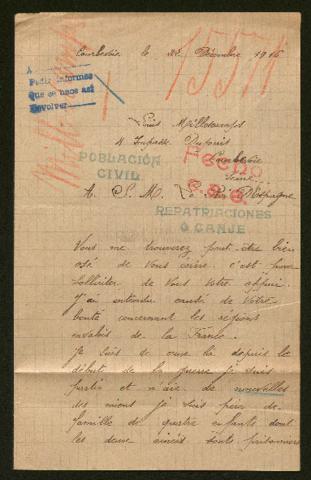 Courbevoie le 22 Décembre 1916
A
Pedir informes
Que se haos así
Devolver
Millecamps
Louis Millecamps
4 Impasse Dupuis
Courbevoie
Seine
POBLACIÓN
CIVIL
A. S. M. Le Roi d'Espagne
REPATRIACIONES
Ó CANJE
Vous me trouverez peut être bien
osé de Vous écrire c'est pour
solliciter de Vous Votre appui.
J'ai entendu causé de Votre
bonté concernant les régions
envahis de la France.
Je suis de ceuse là depuis le
début de la guerre je suis
partie et n'aie de nouvelles
des miens je suis père de
famille de quatre enfants dont
les deux ainées sont prisonniers